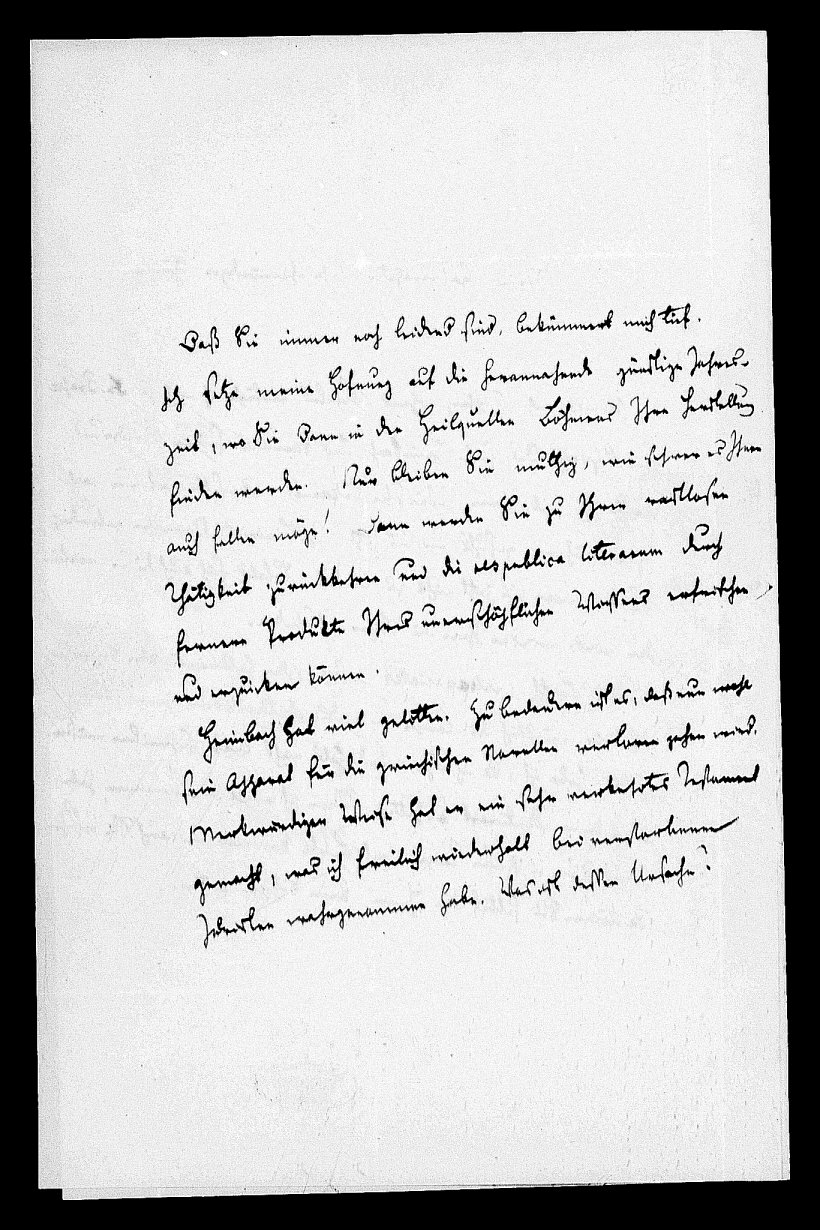 Daß Sie immer noch leidend sind, bekümmert mich tief.
Ich setze meine Hofnung auf die herannahende günstige Jahres-
zeit, wo Sie dann in den Heilquellen Böhmens Ihre Herstellung
finden werden. Nur bleiben Sie muthig, wie schwer es Ihnen
auch fallen möge! Dann werden Sie zu Ihrer rastlosen
Thätigkeit zurückkehren und die respublica literarum durch
fernere Produkte Ihres unerschöpflichen Wissens erfrischen
und erquicken können.
Heimbach hat viel gelitten. Zu bedauern ist es, daß nun wohl
sein Apparat für die griechischen Novellen verloren gehen wird.
Merkwürdiger Weise hat er ein sehr verkehrtes Testament
gemacht, was ich freilich wiederholt bei verstorbenen
Juristen wahrgenommen habe. Was ist dessen Ursache?